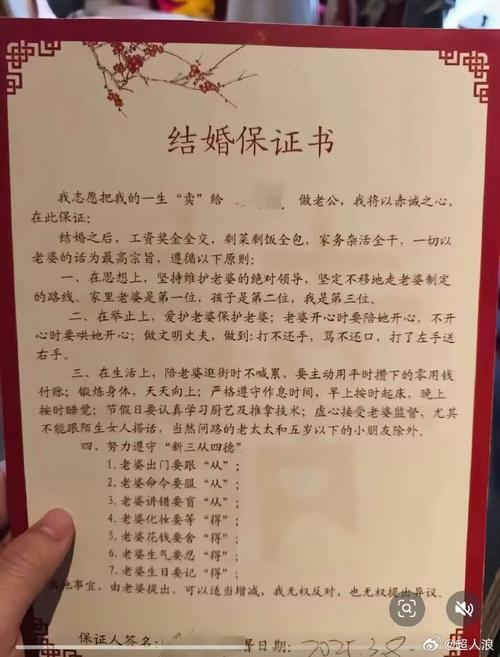 结婚保证书
我志愿把我的一生“卖”给 做老公，我将以赤诚之心，
在此保证：
结婚之后，工资奖金全交，剩菜剩饭全包，家务杂活全干，一切以
老婆的话为最高宗旨，遵循以下原则：
一、在思想上，坚持维护老婆的绝对领导，坚定不移地走老婆制定
的路线。家里老婆是第一位，孩子是第二位，我是第三位。
二、在举止上，爱护老婆保护老婆；老婆开心时要陪她开心，不开
心时要哄她开心；做文明丈夫，做到：打不还手，骂不还口，打了左手送
右手。
三、在生活上，陪老婆逛街时不喊累，要主动用平时攒下的零用钱
付账；锻炼身体，天天向上；严格遵守作息时间，早上按时起床，晚上
按时睡觉；节假日要认真学习厨艺及推拿技术；虚心接受老婆监督，尤其
不能跟陌生女人搭话，当然问路的老太太和五岁以下的小朋友除外。
四、努力遵守“新三从四德”
1.老婆出门要跟“从”；
2.老婆命令要服“从”；
3.老婆讲错要盲“从”；
4.老婆化妆要等“得”；
5.老婆花钱要舍“得”；
6.老婆生气要忍“得”；
7.老婆生日要记“得”；
其他事宜，由老婆提出，可以适当增减，我无权反对，也无权提出异议。
保证人签名： 日期：2025.3.8
@超人浪